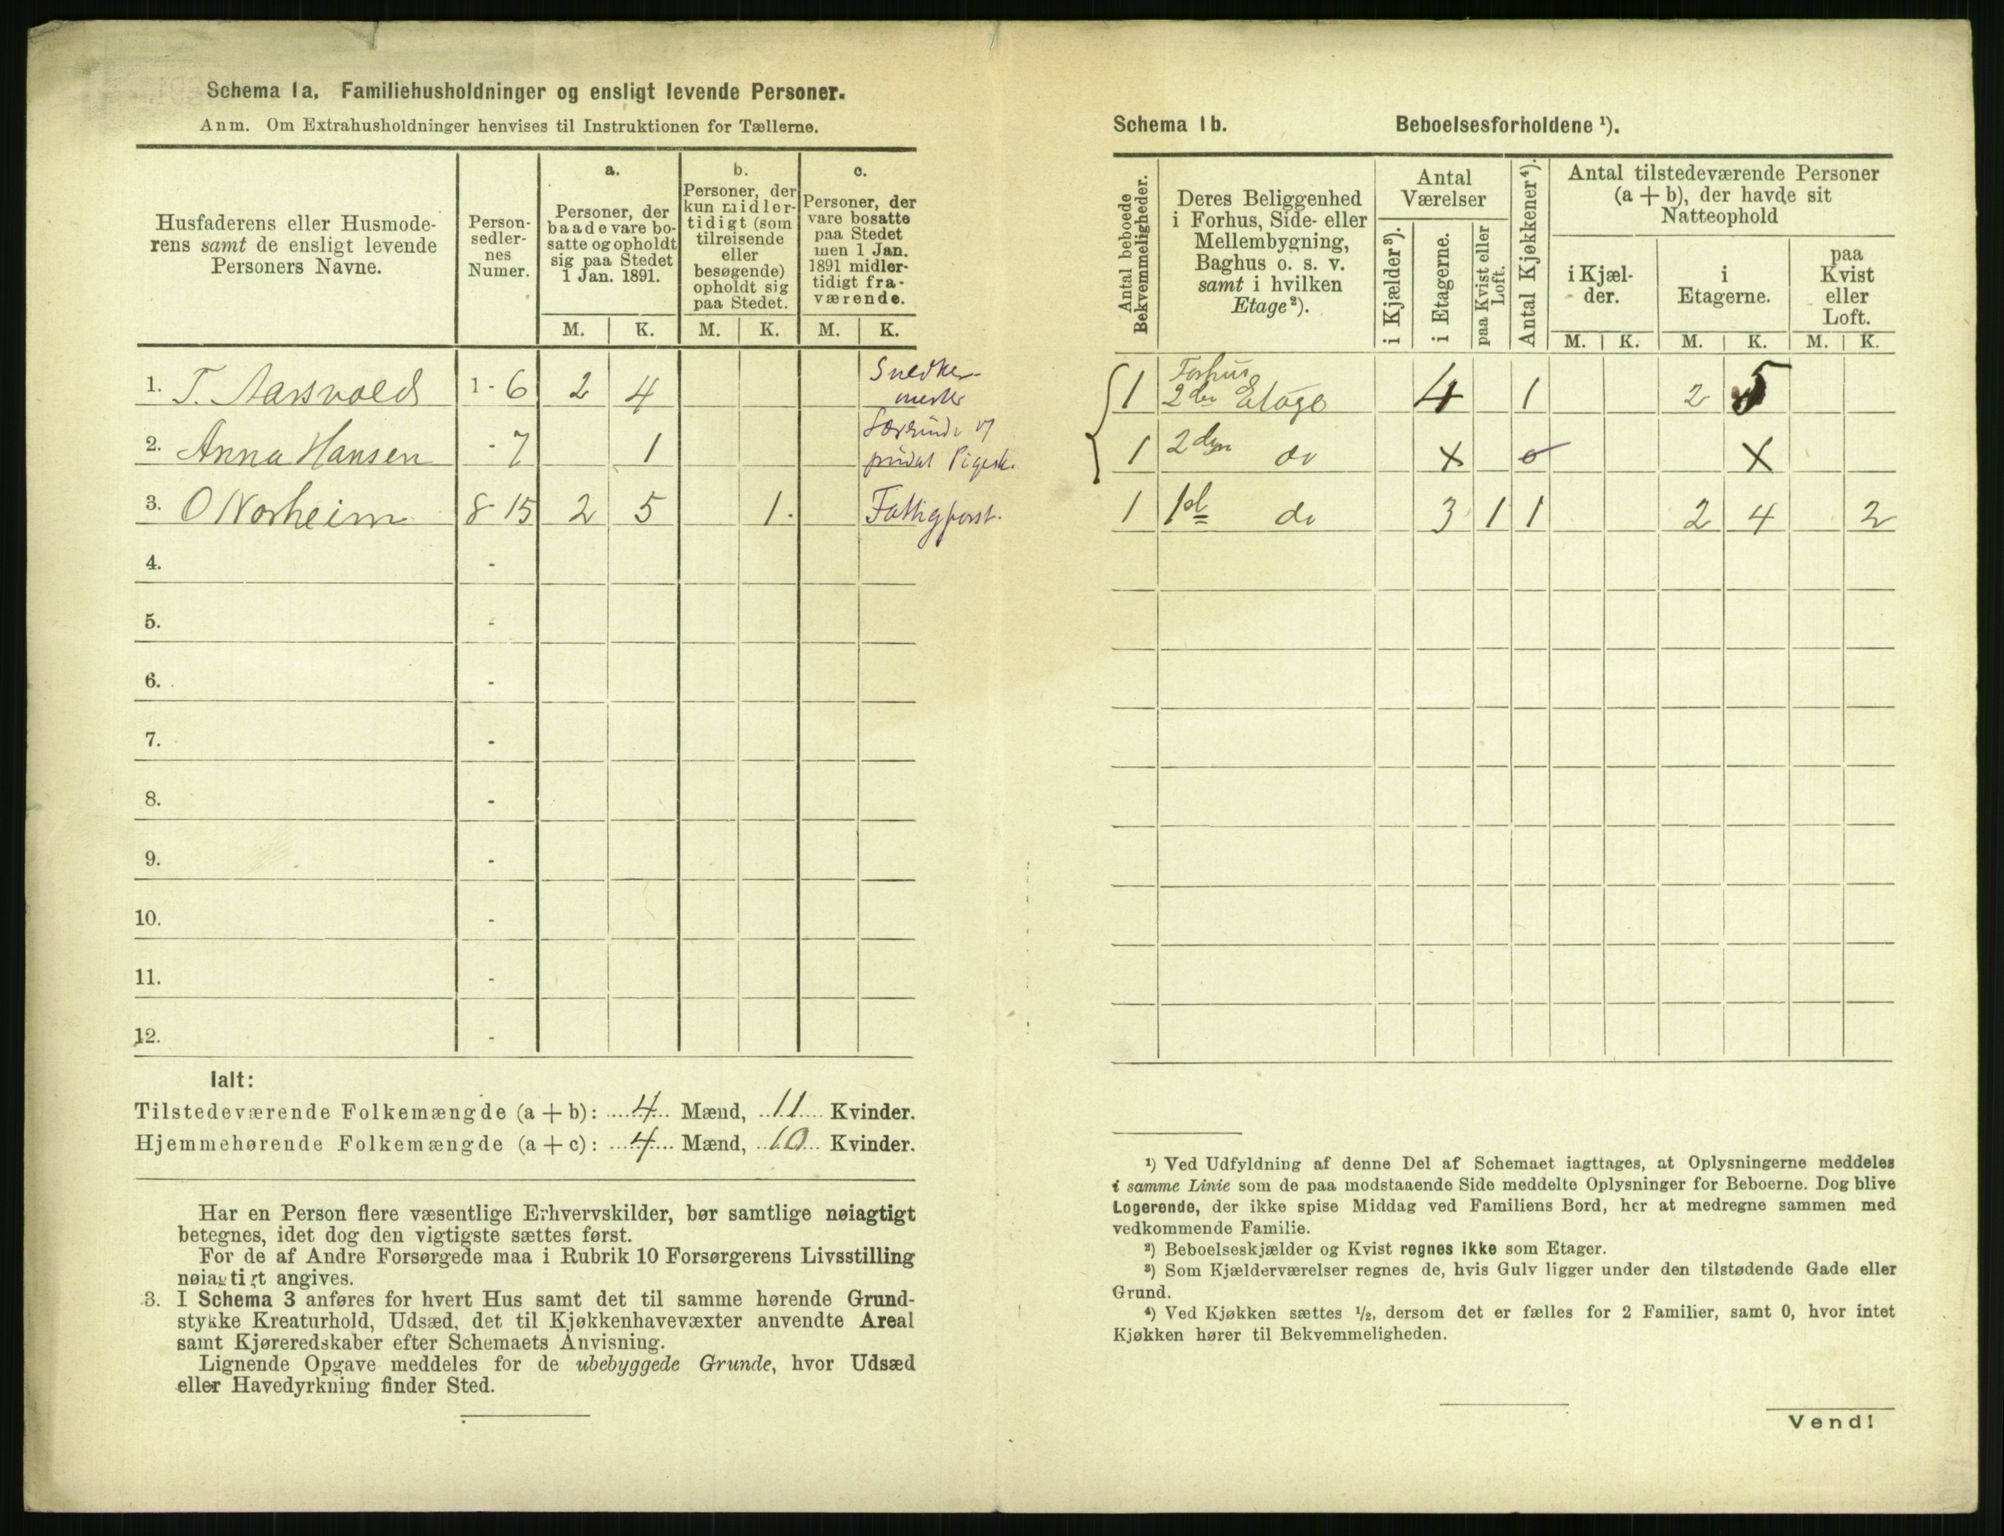 Schema 1a. Familiehusholdninger og ensligt levende Personer.
Anm. Om Extrahusholdninger henvises til Instruktionen for Tællerne.
Husfaderens eller Husmode-
rens samt de ensligt levende
Personers Navne.
Person-
sedler-
nes
Numer.
a.
Personer, der
baade vare bo-
satte og opholdt
sig paa Stedet
1 Jan. 1891.
b.
Personer, der
kun midler-
tidigt (som
tilreisende
eller
besøgende)
opholdt sig
paa Stedet.
c.
Personer, der
vare bosatte
paa Stedet
men 1 Jan.
1891 midler-
tidigt fra-
værende.
M. K. M. K. M. K.
1. T. Aarsvold 1 - 6 2 4 Snedker-
mester
2. Anna Hansen - 7 1
privat
3. O Norheim 8 - 15 2 5 1. Fattigforst.
4. -
5. -
6. -
7. -
8. -
9. -
10. -
11. -
12. -
Ialt:
Tilstedeværende Folkemængde (a + b): 4 Mænd, 11 Kvinder.
Hjemmehørende Folkemængde (a + c): 4 Mænd, 10 Kvinder.
Har en Person flere væsentlige Erhvervskilder, bør samtlige nøiagtigt
betegnes, idet dog den vigtigste sættes først.
For de af Andre Forsørgede maa i Rubrik 10 Forsørgerens Livsstilling
nøiagtigt angives.
3. I Schema 3 anføres for hvert Hus samt det til samme hørende Grund-
stykke Kreaturhold, Udsæd, det til Kjøkkenhavevæxter anvendte Areal
samt Kjøreredskaber efter Schemaets Anvisning.
Lignende Opgave meddeles for de ubebyggede Grunde, hvor Udsæd
eller Havedyrkning finder Sted.
Schema 1b. Beboelsesforholdene ¹).
Antal beboede
Bekvemmeligheder.
Deres Beliggenhed
i Forhus, Side- eller
Mellembygning,
Baghus o. s. v.
samt i hvilken
Etage ²).
Antal
Værelser
i Kjælder ³).
i Etagerne.
paa Kvist eller
Loft.
Antal Kjøkkener ⁴).
Antal tilstedeværende Personer
(a + b), der havde sit
Natteophold
i Kjæl-
der.
i
Etagerne.
paa
Kvist
eller
Loft.
M. K. M. K. M. K.
1 Forhus
2den Etage 4 1 2 5
1 2den do x 0 x
1 1ste do 3 1 1 2 4 2
¹) Ved Udfyldning af denne Del af Schemaet iagttages, at Oplysningerne meddeles
i samme Linie som de paa modstaaende Side meddelte Oplysninger for Beboerne. Dog blive
Logerende, der ikke spise Middag ved Familiens Bord, her at medregne sammen med
vedkommende Familie.
²) Beboelseskjælder og Kvist regnes ikke som Etager.
³) Som Kjælderværelser regnes de, hvis Gulv ligger under den tilstødende Gade eller
Grund.
⁴) Ved Kjøkken sættes ½, dersom det er fælles for 2 Familier, samt 0, hvor intet
Kjøkken hører til Bekvemmeligheden.
Vend!